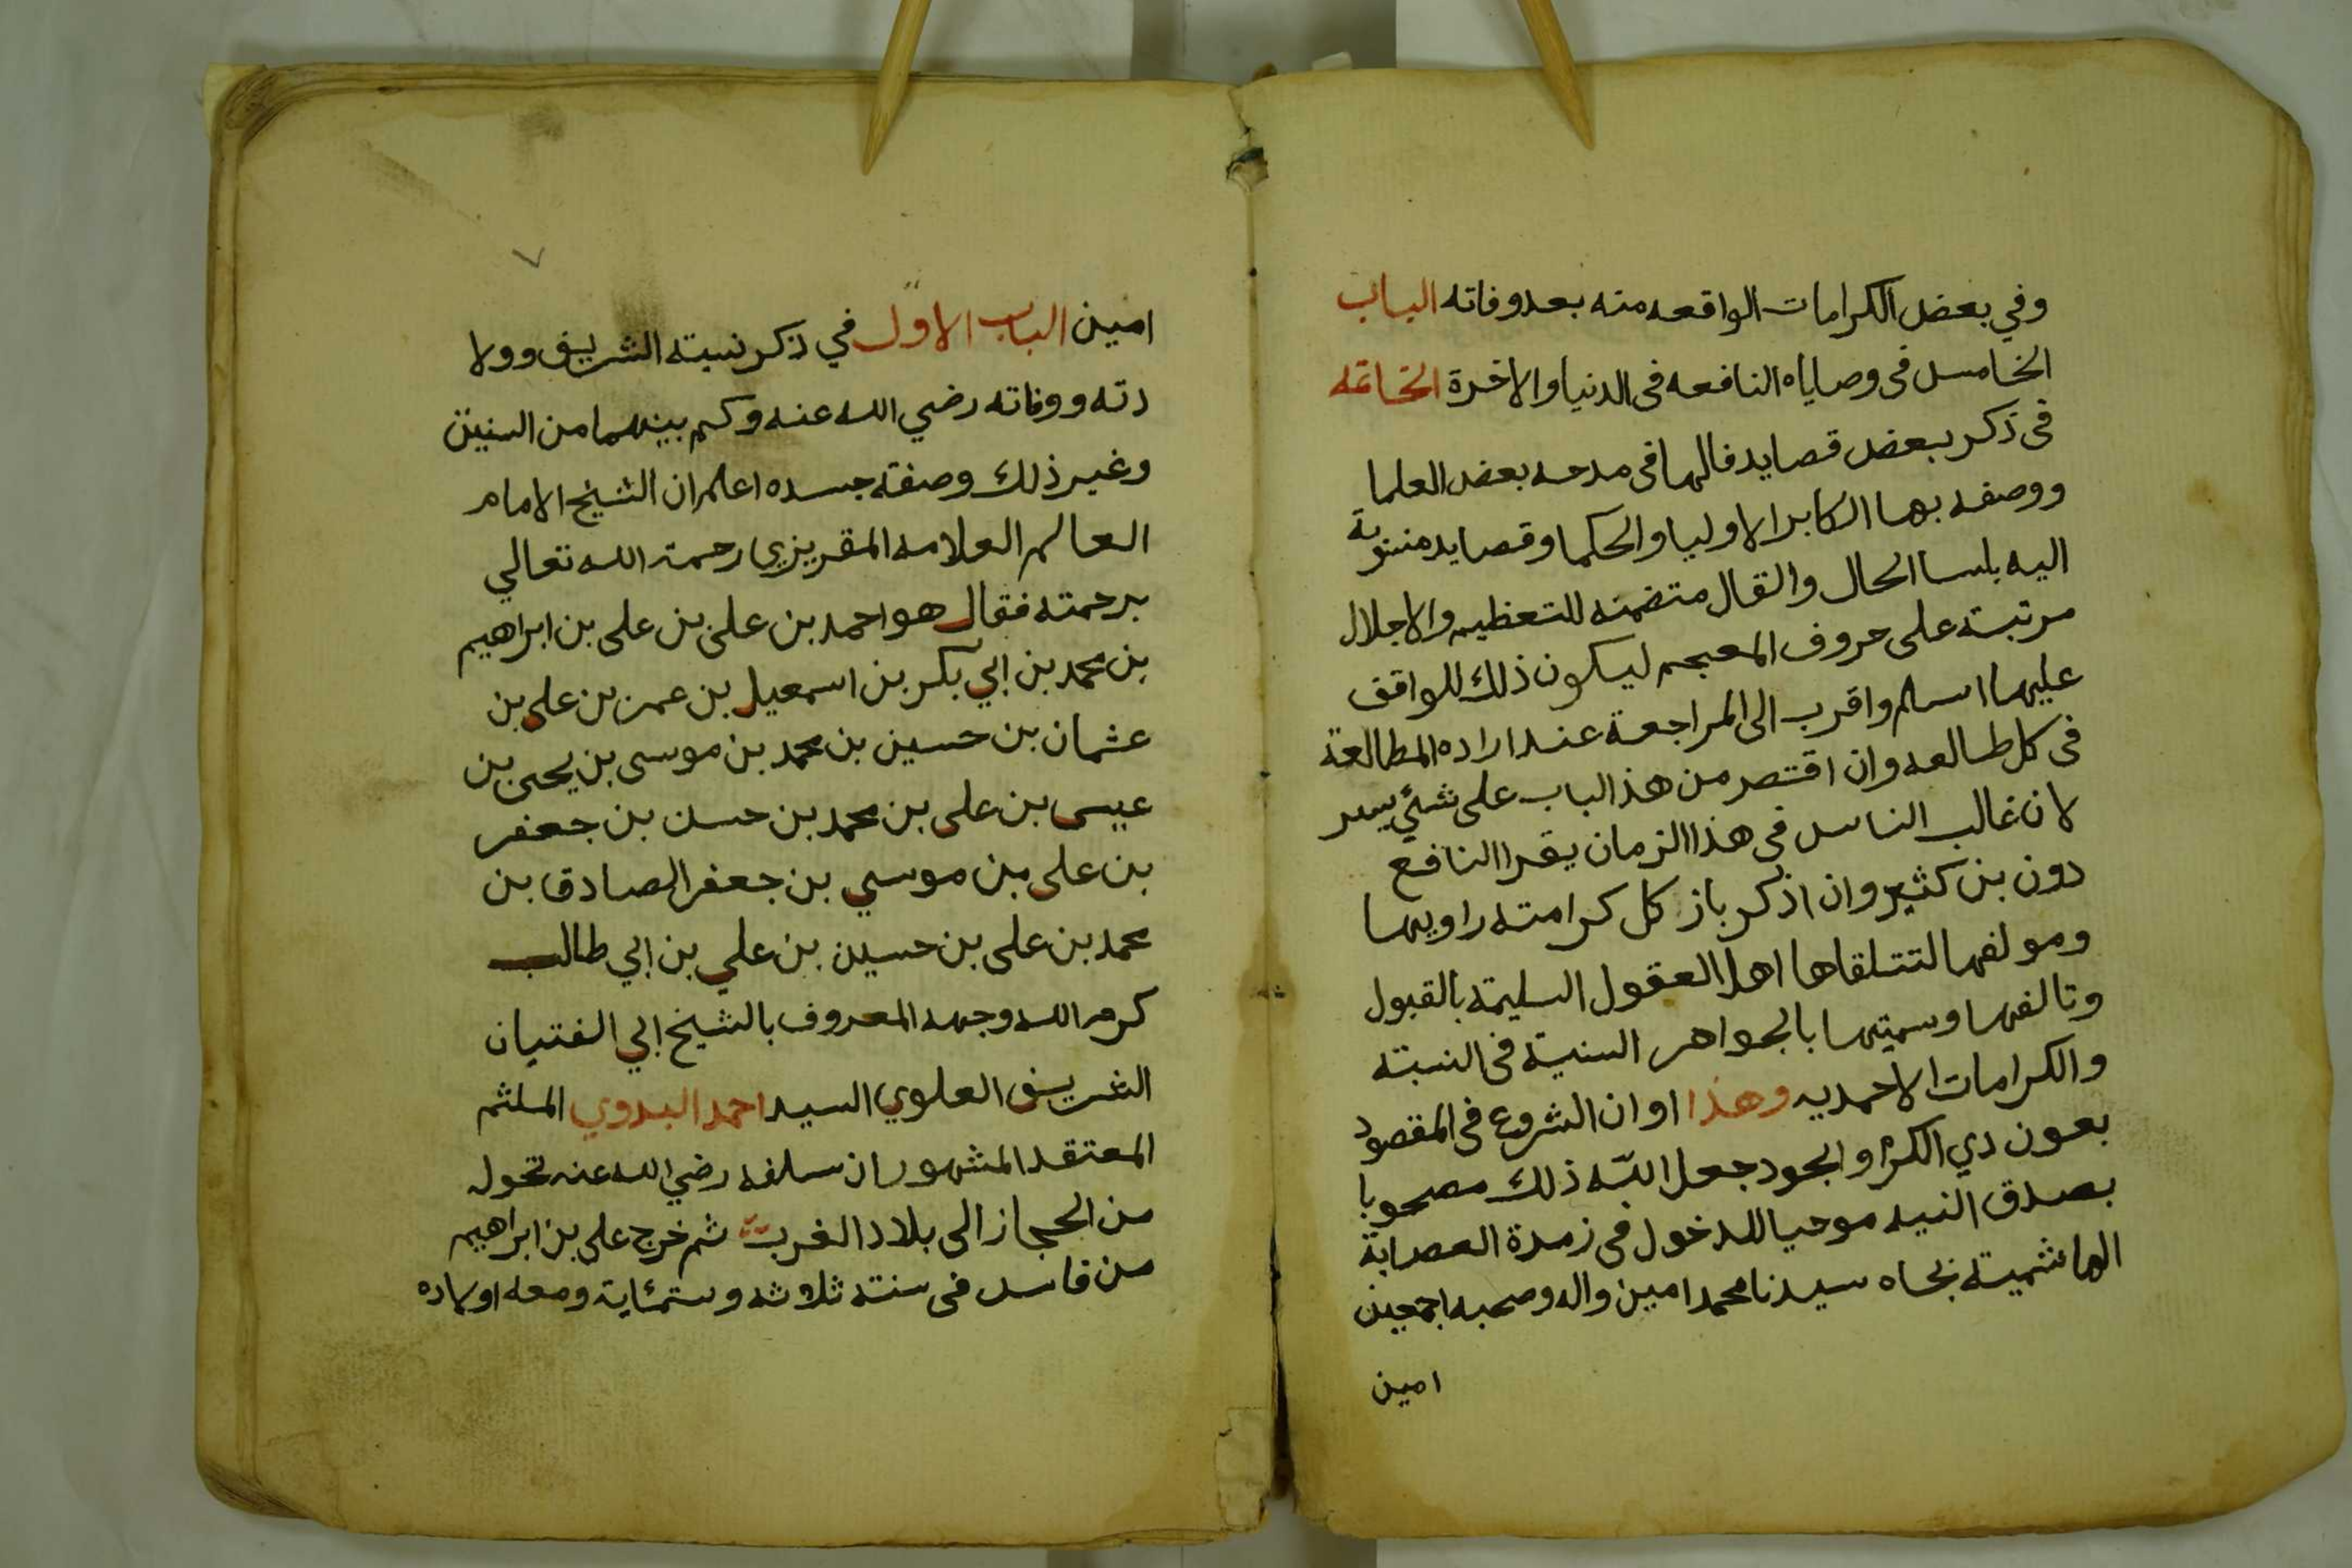 وفي بعض الكرامات الواقعه منه بعد وفاته الباب
الخامس فى وصاياه النافعه فى الدنيا والاخرة الخاتمه
فى ذكر بعض قصايد قالها فى مدحه بعض العلما
ووصفه بها اكابر الاوليا والحكما وقصايد منسوبة
اليه بلسا الحال والقال متضمنه للتعظيم والاجلال
مرتبة على حروف المعجم ليكون ذلك للواقف
عليها اسلم واقرب الى المراجعة عند اراده المطالعة
فى كل طالعه وان اقتصر من هذا الباب على شئ يسر
لان غالب الناس فى هذا الزمان يقرا النافع
دون بن كثير وان اذكر باز كل كرامته راويها
ومولفها لتتلقاها اهل العقول السليمة بالقبول
وتالفها وسميتها بالجواهر السنية فى النسبته
والكرامات الاحمديه وهذا اوان الشروع فى المقصود
بعون دي الكرم والجود جعل الله ذلك مصحوبا
بصدق النيه موحيا للدخول فى زمرة العصابة
الهاشمية بجاه سيدنا محمد امين واله وصحبه اجمعين
امين
٧
امين الباب الاول في ذكر نسبته الشريف وولا
دته ووفاته رضي الله عنه وكم بينهما من السنين
وغير ذلك وصفة جسده اعلم ان الشيخ الامام
العالم العلامه المقريزي رحمة الله تعالي
برحمته فقال هو احمد بن على بن على بن ابراهيم
بن محمد بن ابي بكر بن اسمعيل بن عمر بن على بن
عثمان بن حسين بن محمد بن موسى بن يحيى بن
عيسى بن على بن محمد بن حسن بن جعفر
بن على بن موسي بن جعفر الصادق بن
محمد بن على بن حسين بن علي بن ابي طالب
كرم الله وجهه المعروف بالشيخ ابي الفتيان
الشريف العلوي السيد احمد البدوي الملثم
المعتقد المشهور ان سلفه رضي الله عنه تحول
من الحجاز الى بلاد الغرب ثم خرج على بن ابراهيم
من فاس فى سنته ثلاثه وستمئاية ومعه اولاده